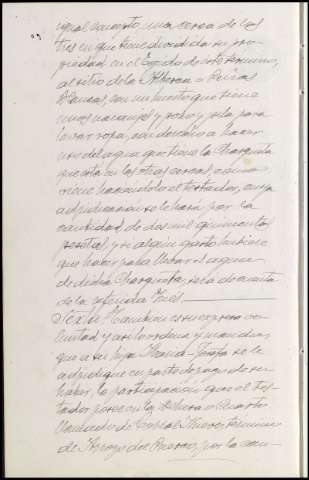 igual concepto, una cerca de las
tres en que tiene dividida su pro-
piedad en el Egido de este termino,
al sitio de la Alberca o Peñas
Blancas, con un huerto que tiene
unos naranjos y pozo y pila para
lavar ropa, con derecho a hacer
uso del agua que tiene la Charquita
que esta en las otras cercas, como
viene haciendolo el testador, cuya
adjudicación se le hará por la
cantidad de dos mil quinientas
pesetas, y si algun gasto hubiese
que haber para llevar el agua
de dicha Charquita, será de cuenta
de la referida Inés.
Sexta: Tambien es su expresa vo-
luntad y asi lo ordena y manda,
que a su hija Maria-Josefa se le
adjudique en parte de pago de su
haber, la participación que el tes-
tador posee en la Dehesa o Cuarto
llamado de termino
de Arroyo del Puerco, por la can-